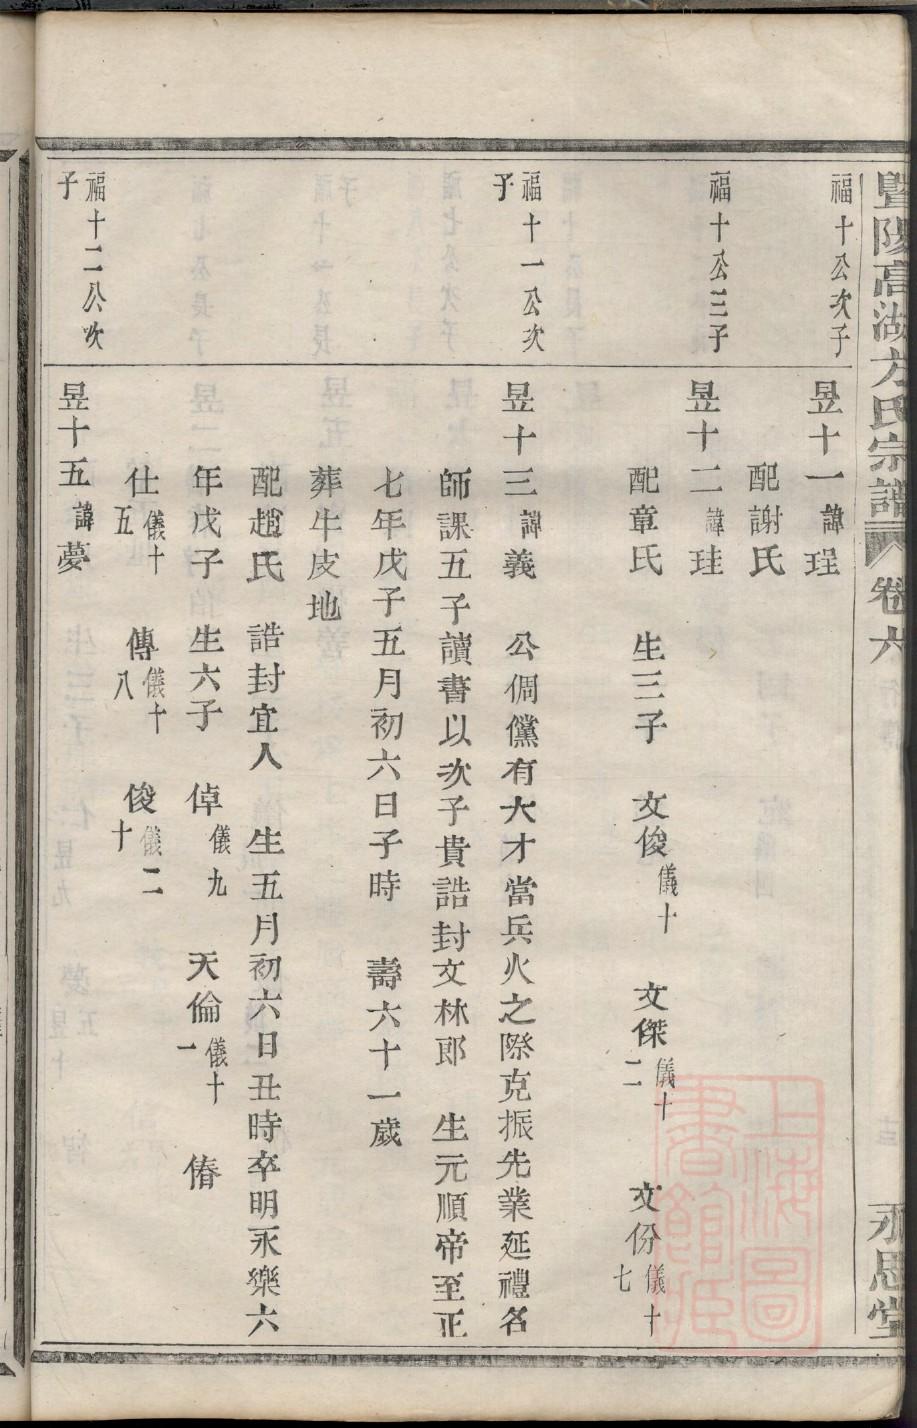 暨陽高湖方氏宗譜 卷六 永思堂
福十公次子
昱十一諱珵
配謝氏
福十公三子
昱十二諱珪
配章氏 生三子 文俊儀十 文傑儀十二 文份儀十七
福十一公次子
昱十三諱義 公倜儻有大才當兵火之際克振先業延禮名
師課五子讀書以次子貴誥封文林郎 生元順帝至正
七年戊子五月初六日子時 壽六十一歲
葬牛皮地
配趙氏 誥封宜人 生五月初六日丑時卒明永樂六
年戊子 生六子 倬儀九 天倫儀十一 偆
仕儀十五 傳儀十八 俊儀二十
福十二公次子
昱十五諱夢
上海圖書館藏